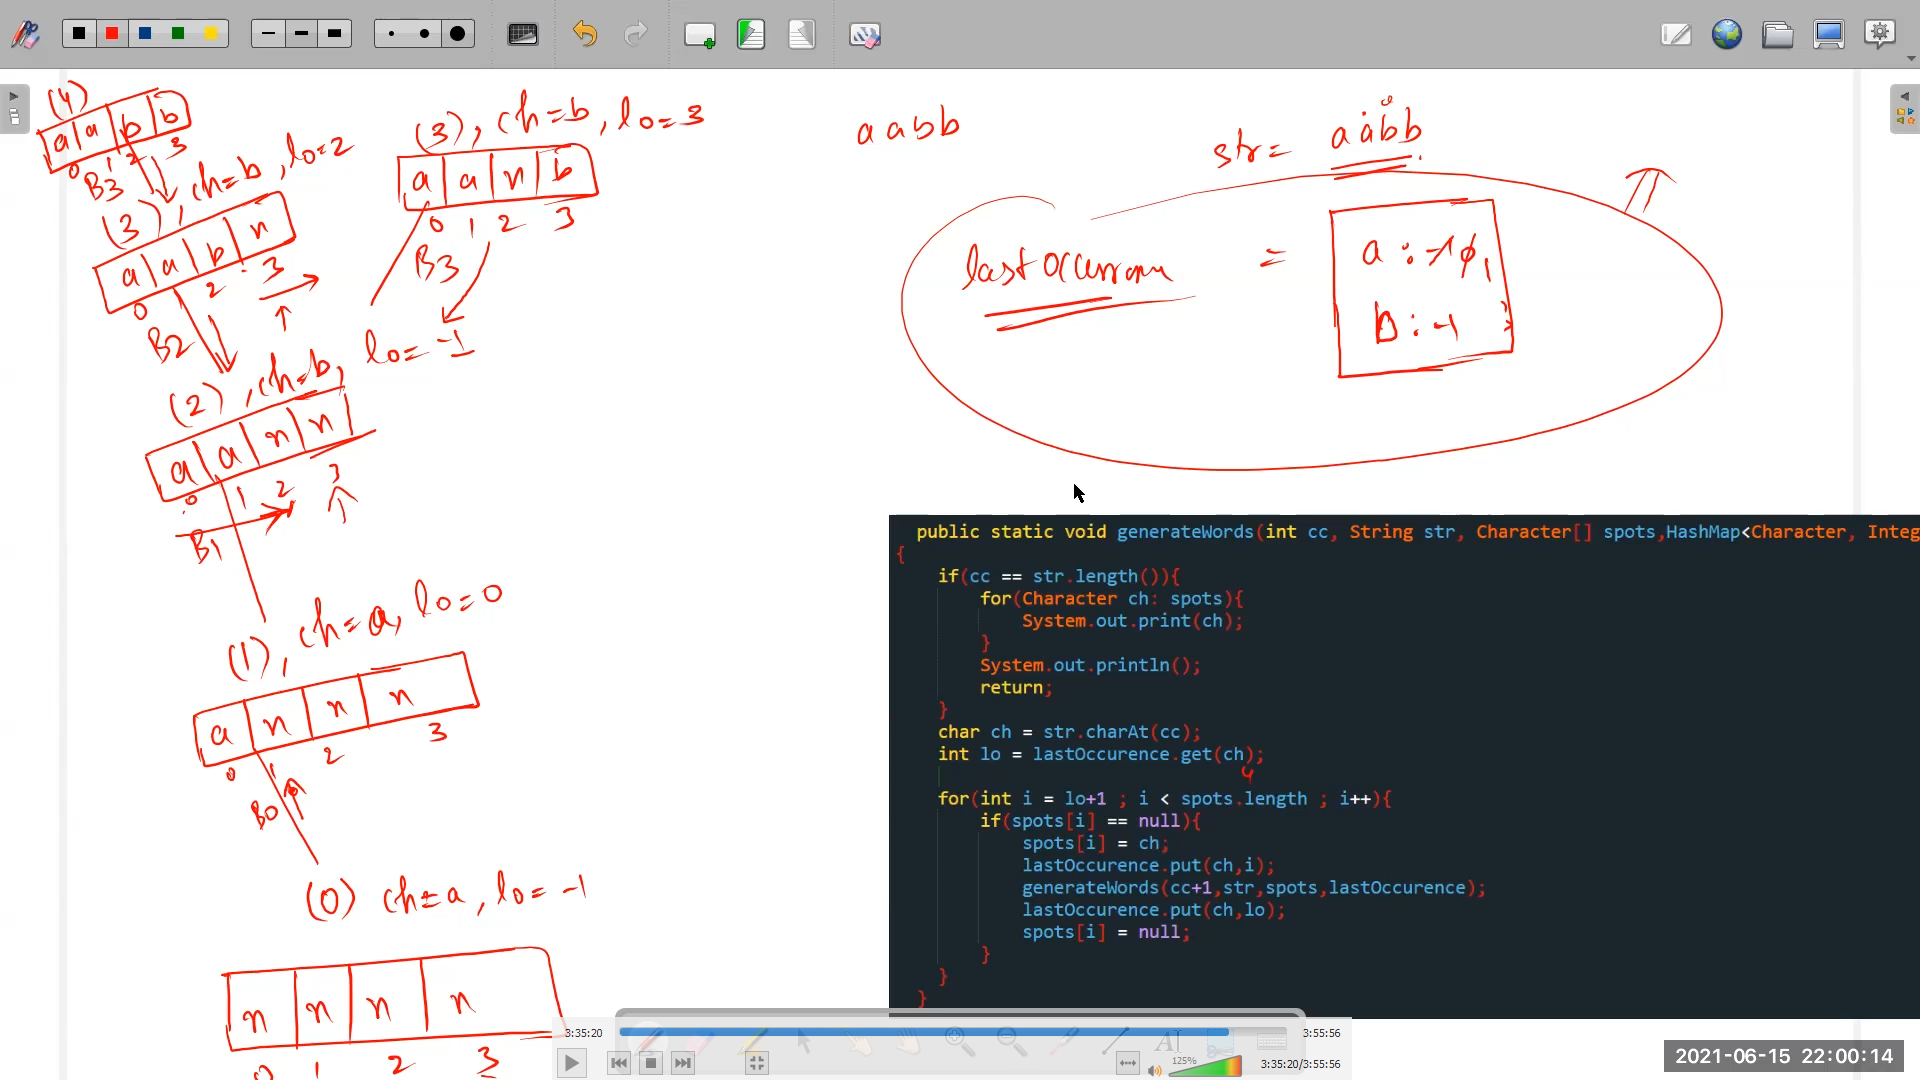 (4)
a a b b
0 1 2 3
B3
(3), ch=b, lo=2
a a b n
0 2 3
B2
(2), ch=b, lo=-1
a a n n
0 1 2 3
B1
(1), ch=a, lo=0
a n n n
0 1 2 3
B0
(0) ch=a, lo=-1
n n n n
0 1 2 3
(3), ch=b, lo=3
a a n b
0 1 2 3
B3
aabb
str= aabb
=
a :
b : -1
public static void generateWords(int cc, String str, Character[] spots,HashMap<Character, Integ
{
if(cc == str.length()){
for(Character ch: spots){
System.out.print(ch);
}
System.out.println();
return;
}
char ch = str.charAt(cc);
int lo = lastOccurence.get(ch);
4
for(int i = lo+1 ; i < spots.length ; i++){
if(spots[i] == null){
spots[i] = ch;
lastOccurence.put(ch,i);
generateWords(cc+1,str,spots,lastOccurence);
lastOccurence.put(ch,lo);
spots[i] = null;
}
}
}
3:35:20
3:55:56
125%
3:35:20/3:55:56
2021-06-15 22:00:14